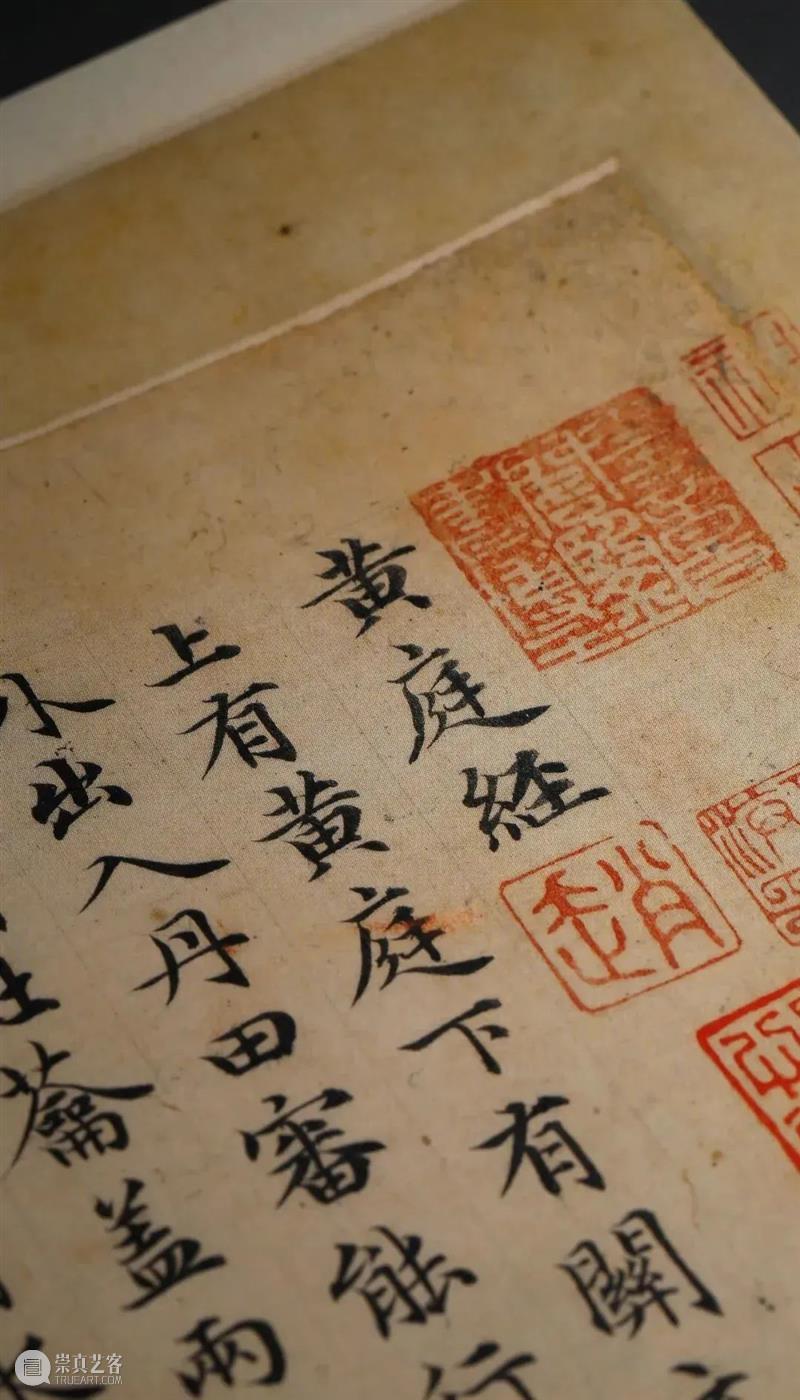 黄庭経
上有黄庭下有關
出入丹田審能行
蘥盖兩
趙
崇真艺客
TRUEART.COM